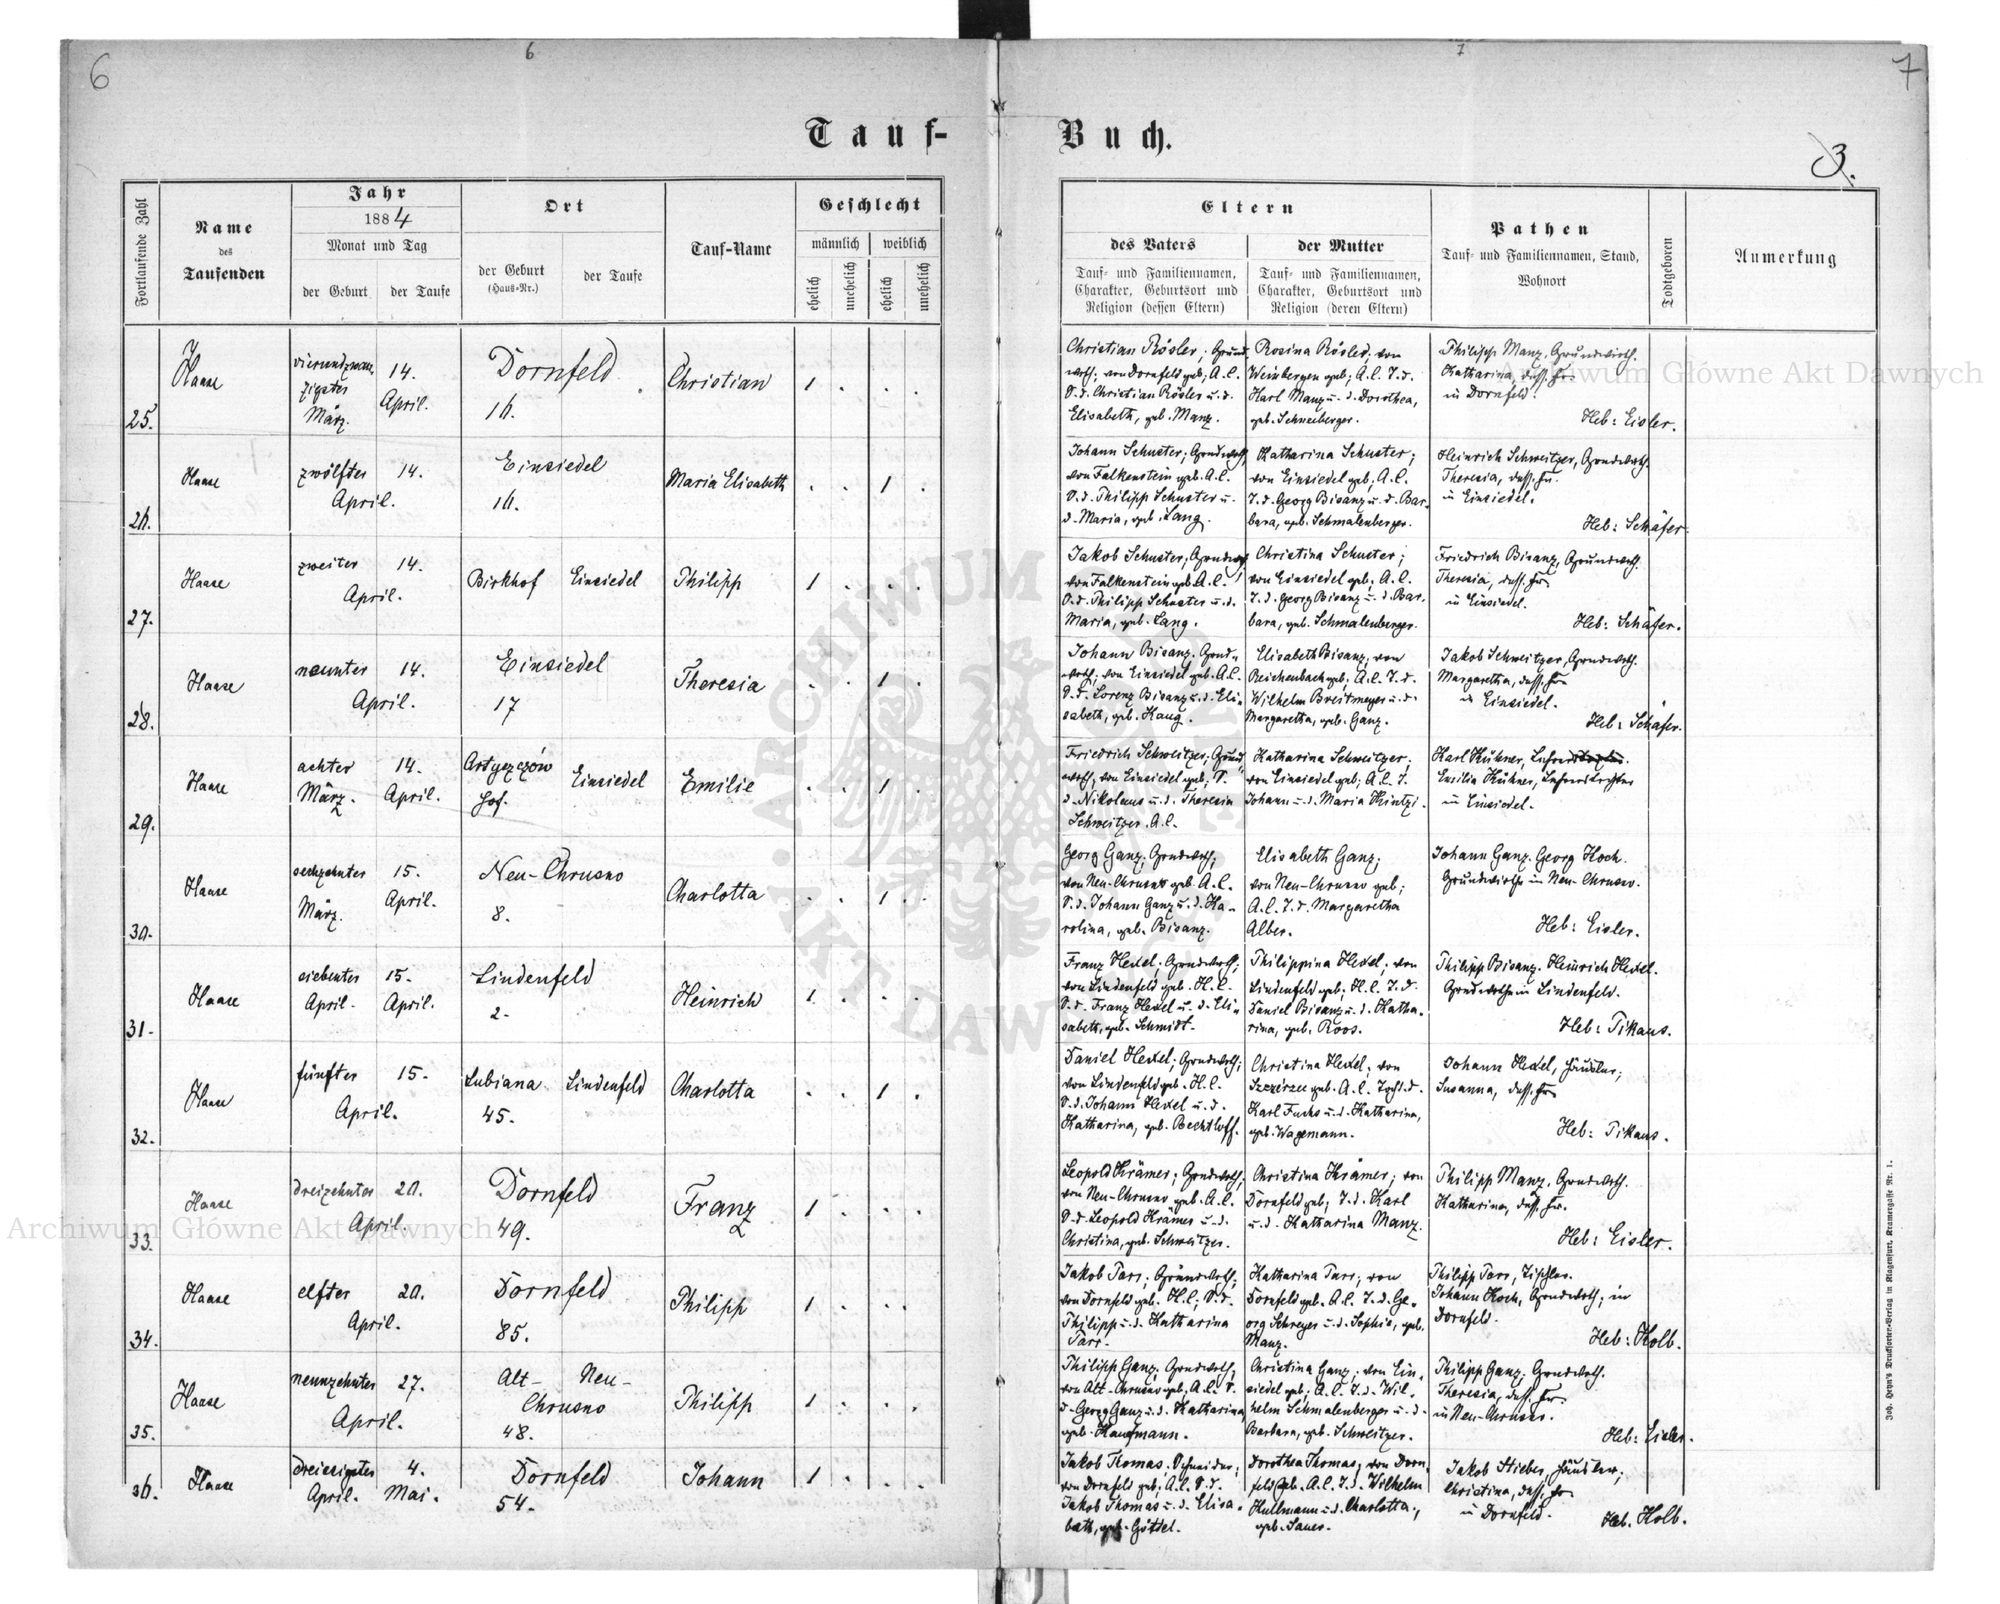 6
6
7
7
Tauf-
Buch.
3.
Fortlaufende Zahl
Name
des
Taufenden
Jahr
1884
Monat und Tag
der Geburt
der Taufe
Ort
der Geburt
(Haus-Nr.)
der Taufe
Tauf-Name
Geschlecht
männlich
weiblich
ehelich
unehelich
ehelich
unehelich
Eltern
des Vaters
Tauf- und Familiennamen,
Charakter, Geburtsort und
Religion (dessen Eltern)
der Mutter
Tauf- und Familiennamen,
Charakter, Geburtsort und
Religion (deren Eltern)
Pathen
Tauf- und Familiennamen, Stand,
Wohnort
Todtgeboren
Anmerkung
25.
Haase
vierundzwan-
zigster
März.
14.
April.
Dornfeld
16.
Christian
1
Christian Rösler; Grund-
wrth. von Dornfeld geb; A.C.
S.d. Christian Rösler u.d.
Elisabeth, geb. Manz.
Rosina Rösler, von
Weinbergen geb; A.C. T.d.
Karl Manz u. d. Dorothea,
geb. Schneeberger.
Philipp Manz, Grundwirth.
Katharina, dess. Fr.
in Dornfeld.
Heb: Eisler.
26.
Haase
zwölfter
April.
14.
Einsiedel
16.
Maria Elisabeth
1
Johann Schuster; Grundwrth;
von Falkenstein geb. A.C.
S.d. Philipp Schuster u.
d. Maria, geb. Lang.
Katharina Schuster;
von Einsiedel geb; A.C.
T.d. Georg Bisanz u. d. Bar-
bara, geb. Schmalenberger.
Heinrich Schweitzer, Grundwrth.
Theresia, dess. Fr.
in Einsiedel.
Heb: Schäfer.
27.
Haase
zweiter
April.
14.
Birkhof
Einsiedel
Philipp
1
Jakob Schuster; Grundwrth
von Falkenstein geb. A.C.
S.d. Philipp Schuster u.d.
Maria, geb. Lang.
Christina Schuster;
von Einsiedel geb; A.C.
T.d. Georg Bisanz u. d. Bar-
bara, geb. Schmalenberger.
Friedrich Bisanz, Grundwrth.
Theresia, dess. Fr.
in Einsiedel.
Heb: Schäfer.
28.
Haase
neunter
April.
14.
Einsiedel
17
Theresia
1
Johann Bisanz. Grnd-
wrth; von Einsiedel geb. A.C.
S.d. Lorenz Bisanz u.d. Eli-
sabeth, geb. Haug.
Elisabeth Bisanz, von
Reichenbach geb; A.C. T.d.
Wilhelm Breitmeyer u.d.
Margaretha, geb. Ganz.
Jakob Schweitzer, Grundwrth.
Margaretha, dess. Fr.
in Einsiedel.
Heb: Schäfer.
29.
Haase
achter
März.
14.
April.
Artyszczów
Hof.
Einsiedel
Emilie
1
Friedrich Schweitzer; Grund-
wrth; von Einsiedel geb; S.
d. Nikolaus u.d. Theresia
Schweitzer. A.C.
Katharina Schweitzer;
von Einsiedel geb; A.C. T.
Johann u.d. Maria Hintzi.
Karl Kühner,
Emilia Kühner, Lehrerstochter
in Einsiedel.
30.
Haase
sechzehnter
März.
15.
April.
Neu-Chrusno
8.
Charlotta
1
Georg Ganz; Grundwrth;
von Neu-Chrusno geb. A.C.
S.d. Johann Ganz u.d. Ka-
rolina, geb. Bisanz.
Elisabeth Ganz;
von Neu-Chrusno geb;
A.C. T.d. Margaretha
Alber.
Johann Ganz. Georg Koch.
Grundwirthe in Neu-Chrusno.
Heb: Eisler.
31.
Haase
siebenter
April.
15.
April.
Lindenfeld
2.
Heinrich
1
Franz Hexel; Grundwrth;
von Lindenfeld geb. H.C.
S.d. Franz Hexel u. d. Eli-
sabeth, geb. Schmidt.
Philippina Hexel, von
Lindenfeld geb; H.C. T.d.
Daniel Bisanz u.d. Katha-
rina, geb. Roos.
Philipp Bisanz. Heinrich Hexel.
Grundwrthe in Lindenfeld.
Heb: Pikaus.
32.
Haase
fünfter
April.
15.
Lubiana
45.
Lindenfeld
Charlotta
1
Daniel Hexel; Grundwrth;
von Lindenfeld geb. H.C.
S.d. Johann Hexel u.d.
Katharina, geb. Bechtloff.
Christina Hexel, von
Szczerzec geb. A.C. Tocht.d.
Karl Fuchs u.d. Katharina,
geb. Wagemann.
Johann Hexel, Häusler;
Susanna, dess. Fr.
Heb: Pikaus.
33.
Haase
dreizehnter
April.
20.
Dornfeld
49.
Franz
1
Leopold Krämer; Grundwrth;
von Neu-Chrusno geb. A.C.
S.d. Leopold Krämer u.d.
Christina, geb. Schweitzer.
Christina Krämer; von
Dornfeld geb; T.d. Karl
u.d. Katharina Manz.
Philipp Manz. Grundwrth.
Katharina, dess. Fr.
Heb: Eisler.
34.
Haase
elfter
April.
20.
Dornfeld
85.
Philipp
1
Jakob Tarr; Grundwrth;
von Dornfeld geb. H.C; S.d.
Philipp u.d. Katharina
Tarr.
Katharina Tarr; von
Dornfeld geb. A.C. T.d. Ge-
org Schreyer u.d. Sophie, geb.
Manz.
Philipp Tarr, Tischler.
Johann Koch, Grundwrth; in
Dornfeld.
Heb: Kolb.
35.
Haase
neunzehnter
April.
27.
Alt- Neu-
Chrusno
48.
Philipp
1
Philipp Ganz; Grundwrth;
von Alt-Chrusno geb; A.C. S.
d. Georg Ganz u.d. Katharina,
geb. Haugmann.
Christina Ganz; von Ein-
siedel geb; A.C. T.d. Wil-
helm Schmalenberger u.d.
Barbara, geb. Schweitzer.
Philipp Ganz. Grundwrth.
Theresia, dess. Fr.
in Neu-Chrusno.
Heb: Eisler.
36.
Haase
dreissigster
April.
4.
Mai.
Dornfeld
54.
Johann
1
Jakob Thomas. Schneider;
von Dornfeld geb; A.C. S.d.
Jakob Thomas u.d. Elisa-
beth, geb. Göttel.
Dorothea Thomas; von Dorn-
feld geb. A.C. T.d. Wilhelm
Kullmann u.d. Charlotta,
geb. Sauer.
Jakob Stieber, Häusler;
Christina, dess. Fr.
in Dornfeld.
Heb. Kolb.
Joh. Heyn's Drucksorten-Verlag in Klagenfurt, Kramergasse Nr. 1.
Archiwum Główne Akt Dawnych
Archiwum Główne Akt Dawnych